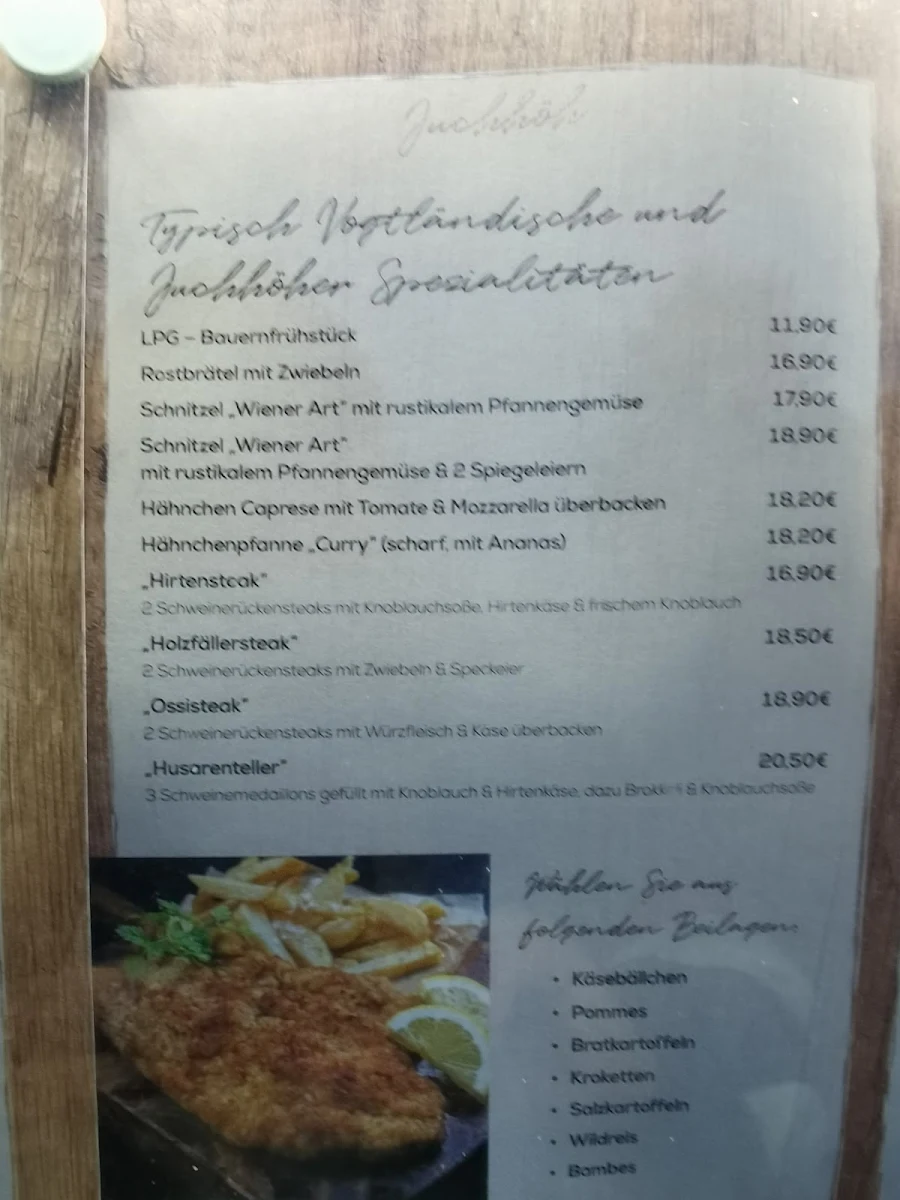 Juchhöh
Typisch Vogtländische und
Juchhöher Spezialitäten
LPG – Bauernfrühstück 11,90€
Rostbrätel mit Zwiebeln 16,90€
Schnitzel „Wiener Art“ mit rustikalem Pfannengemüse 17,90€
Schnitzel „Wiener Art“ 18,90€
mit rustikalem Pfannengemüse & 2 Spiegeleiern
Hähnchen Caprese mit Tomate & Mozzarella überbacken 18,20€
Hähnchenpfanne „Curry“ (scharf, mit Ananas) 18,20€
„Hirtensteak“ 16,90€
2 Schweinerückensteaks mit Knoblauchsoße, Hirtenkäse & frischem Knoblauch
„Holzfällersteak“ 18,50€
2 Schweinerückensteaks mit Zwiebeln & Speckeier
„Ossisteak“ 18,90€
2 Schweinerückensteaks mit Würzfleisch & Käse überbacken
„Husarenteller“ 20,50€
3 Schweinemedaillons gefüllt mit Knoblauch & Hirtenkäse, dazu & Knoblauchsoße
Wählen Sie aus
folgenden Beilagen:
• Käsebällchen
• Pommes
• Bratkartoffeln
• Kroketten
• Salzkartoffeln
• Wildreis
• Bambes